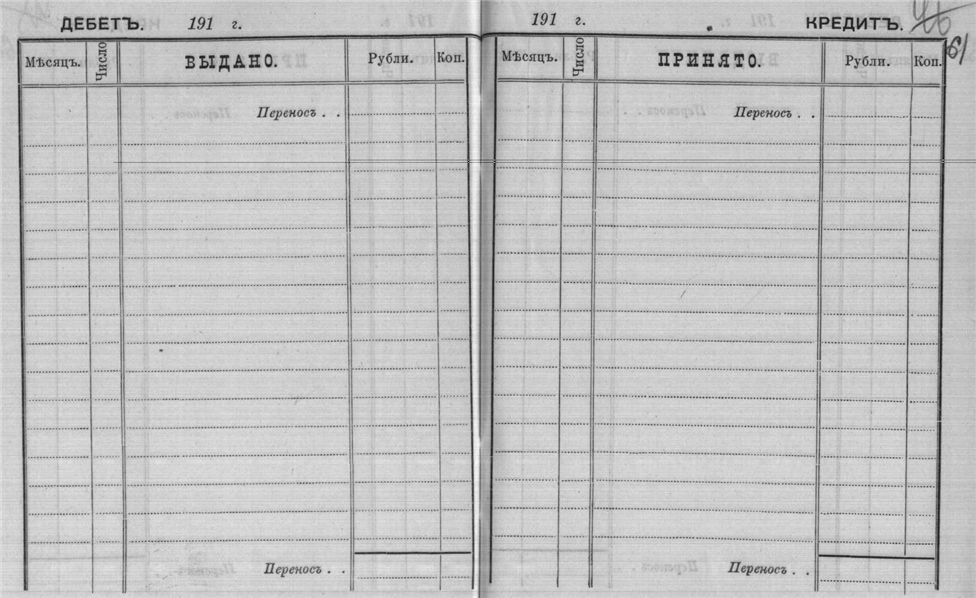 ДЕБЕТЪ. 191 г.
Мѣсяцъ. Число ВЫДАНО. Рубли. Коп.
Переносъ . .
Переносъ . .
191 г. КРЕДИТЪ.
61
Мѣсяцъ. Число ПРИНЯТО. Рубли. Коп.
Переносъ . .
Переносъ . .